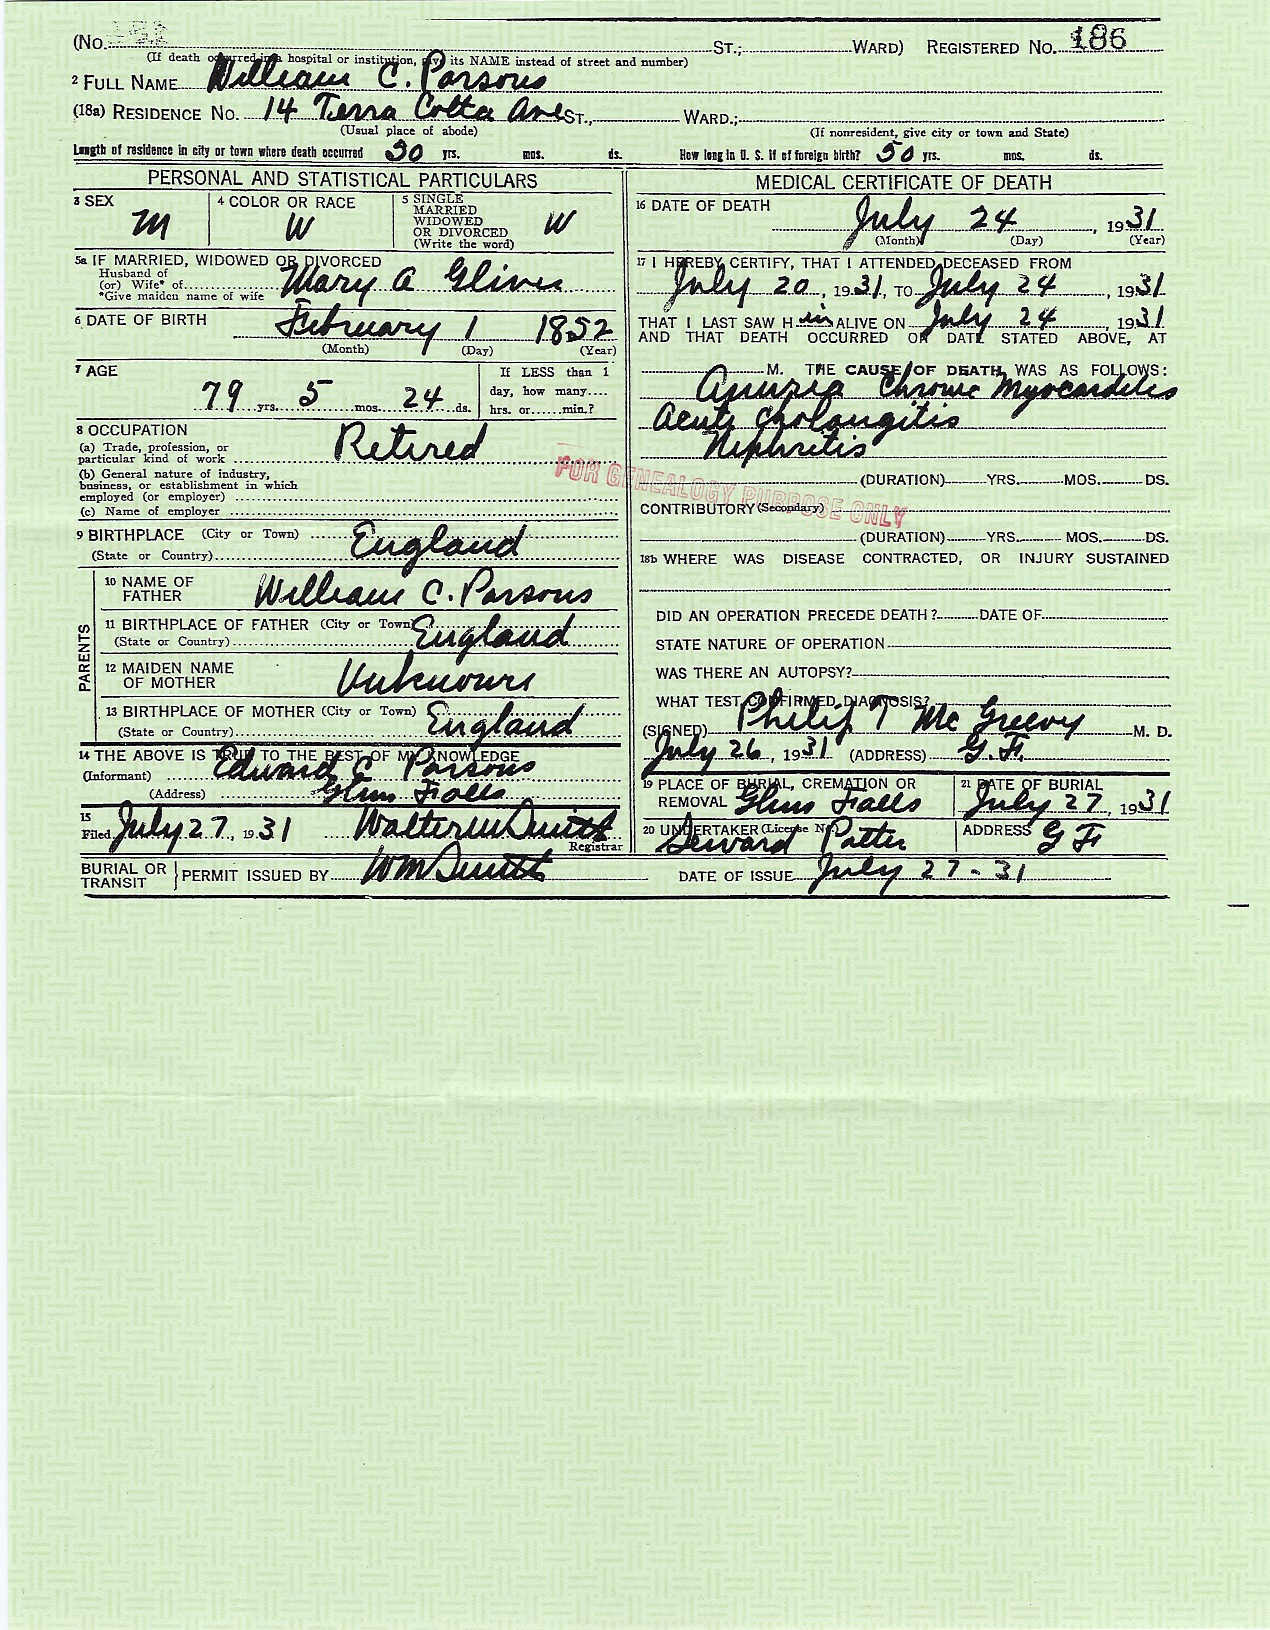 (No. ST.; WARD) REGISTERED NO. 186
(If death occurred in a hospital or institution, give its NAME instead of street and number)
2 FULL NAME William C. Parsons
(18a) RESIDENCE NO. 14 Terra Cotta Ave ST., WARD.;
(Usual place of abode) (If nonresident, give city or town and State)
Length of residence in city or town where death occurred 50 yrs. mos. ds. How long in U. S. if of foreign birth? 50 yrs. mos. ds.
PERSONAL AND STATISTICAL PARTICULARS
3 SEX M
4 COLOR OR RACE W
5 SINGLE
MARRIED
WIDOWED
OR DIVORCED
(Write the word) W
5a IF MARRIED, WIDOWED OR DIVORCED
Husband of
(or) Wife* of Mary A
*Give maiden name of wife
6 DATE OF BIRTH February 1 1852
(Month) (Day) (Year)
7 AGE
79 yrs. 5 mos. 24 ds.
If LESS than 1
day, how many....
hrs. or......min.?
8 OCCUPATION
(a) Trade, profession, or
particular kind of work Retired
(b) General nature of industry,
business, or establishment in which
employed (or employer)
(c) Name of employer
9 BIRTHPLACE (City or Town)
(State or Country) England
PARENTS
10 NAME OF
FATHER William C. Parsons
11 BIRTHPLACE OF FATHER (City or Town)
(State or Country) England
12 MAIDEN NAME
OF MOTHER Unknown
13 BIRTHPLACE OF MOTHER (City or Town)
(State or Country) England
14 THE ABOVE IS TRUE TO THE BEST OF MY KNOWLEDGE
(Informant) Edward C Parsons
(Address) Glens Falls
15
Filed July 27, 1931 Walter W Smith
Registrar
MEDICAL CERTIFICATE OF DEATH
16 DATE OF DEATH
July 24, 1931
(Month) (Day) (Year)
17 I HEREBY CERTIFY, THAT I ATTENDED DECEASED FROM
July 20, 1931, TO July 24, 1931
THAT I LAST SAW H im ALIVE ON July 24, 1931
AND THAT DEATH OCCURRED ON DATE STATED ABOVE, AT
M. THE CAUSE OF DEATH WAS AS FOLLOWS:
Chronic Myocarditis
Acute Cholangitis
Nephritis
(DURATION) YRS. MOS. DS.
FOR GENEALOGY PURPOSE ONLY
CONTRIBUTORY (Secondary)
(DURATION) YRS. MOS. DS.
18b WHERE WAS DISEASE CONTRACTED, OR INJURY SUSTAINED
DID AN OPERATION PRECEDE DEATH? DATE OF
STATE NATURE OF OPERATION
WAS THERE AN AUTOPSY?
WHAT TEST CONFIRMED DIAGNOSIS?
(SIGNED) Philip T McGreevy M. D.
July 26, 1931 (ADDRESS) G. F.
19 PLACE OF BURIAL, CREMATION OR
REMOVAL Glens Falls
21 DATE OF BURIAL
July 27, 1931
20 UNDERTAKER (License No.)
Seward Potter
ADDRESS G F
BURIAL OR
TRANSIT PERMIT ISSUED BY WM Smith DATE OF ISSUE July 27-31